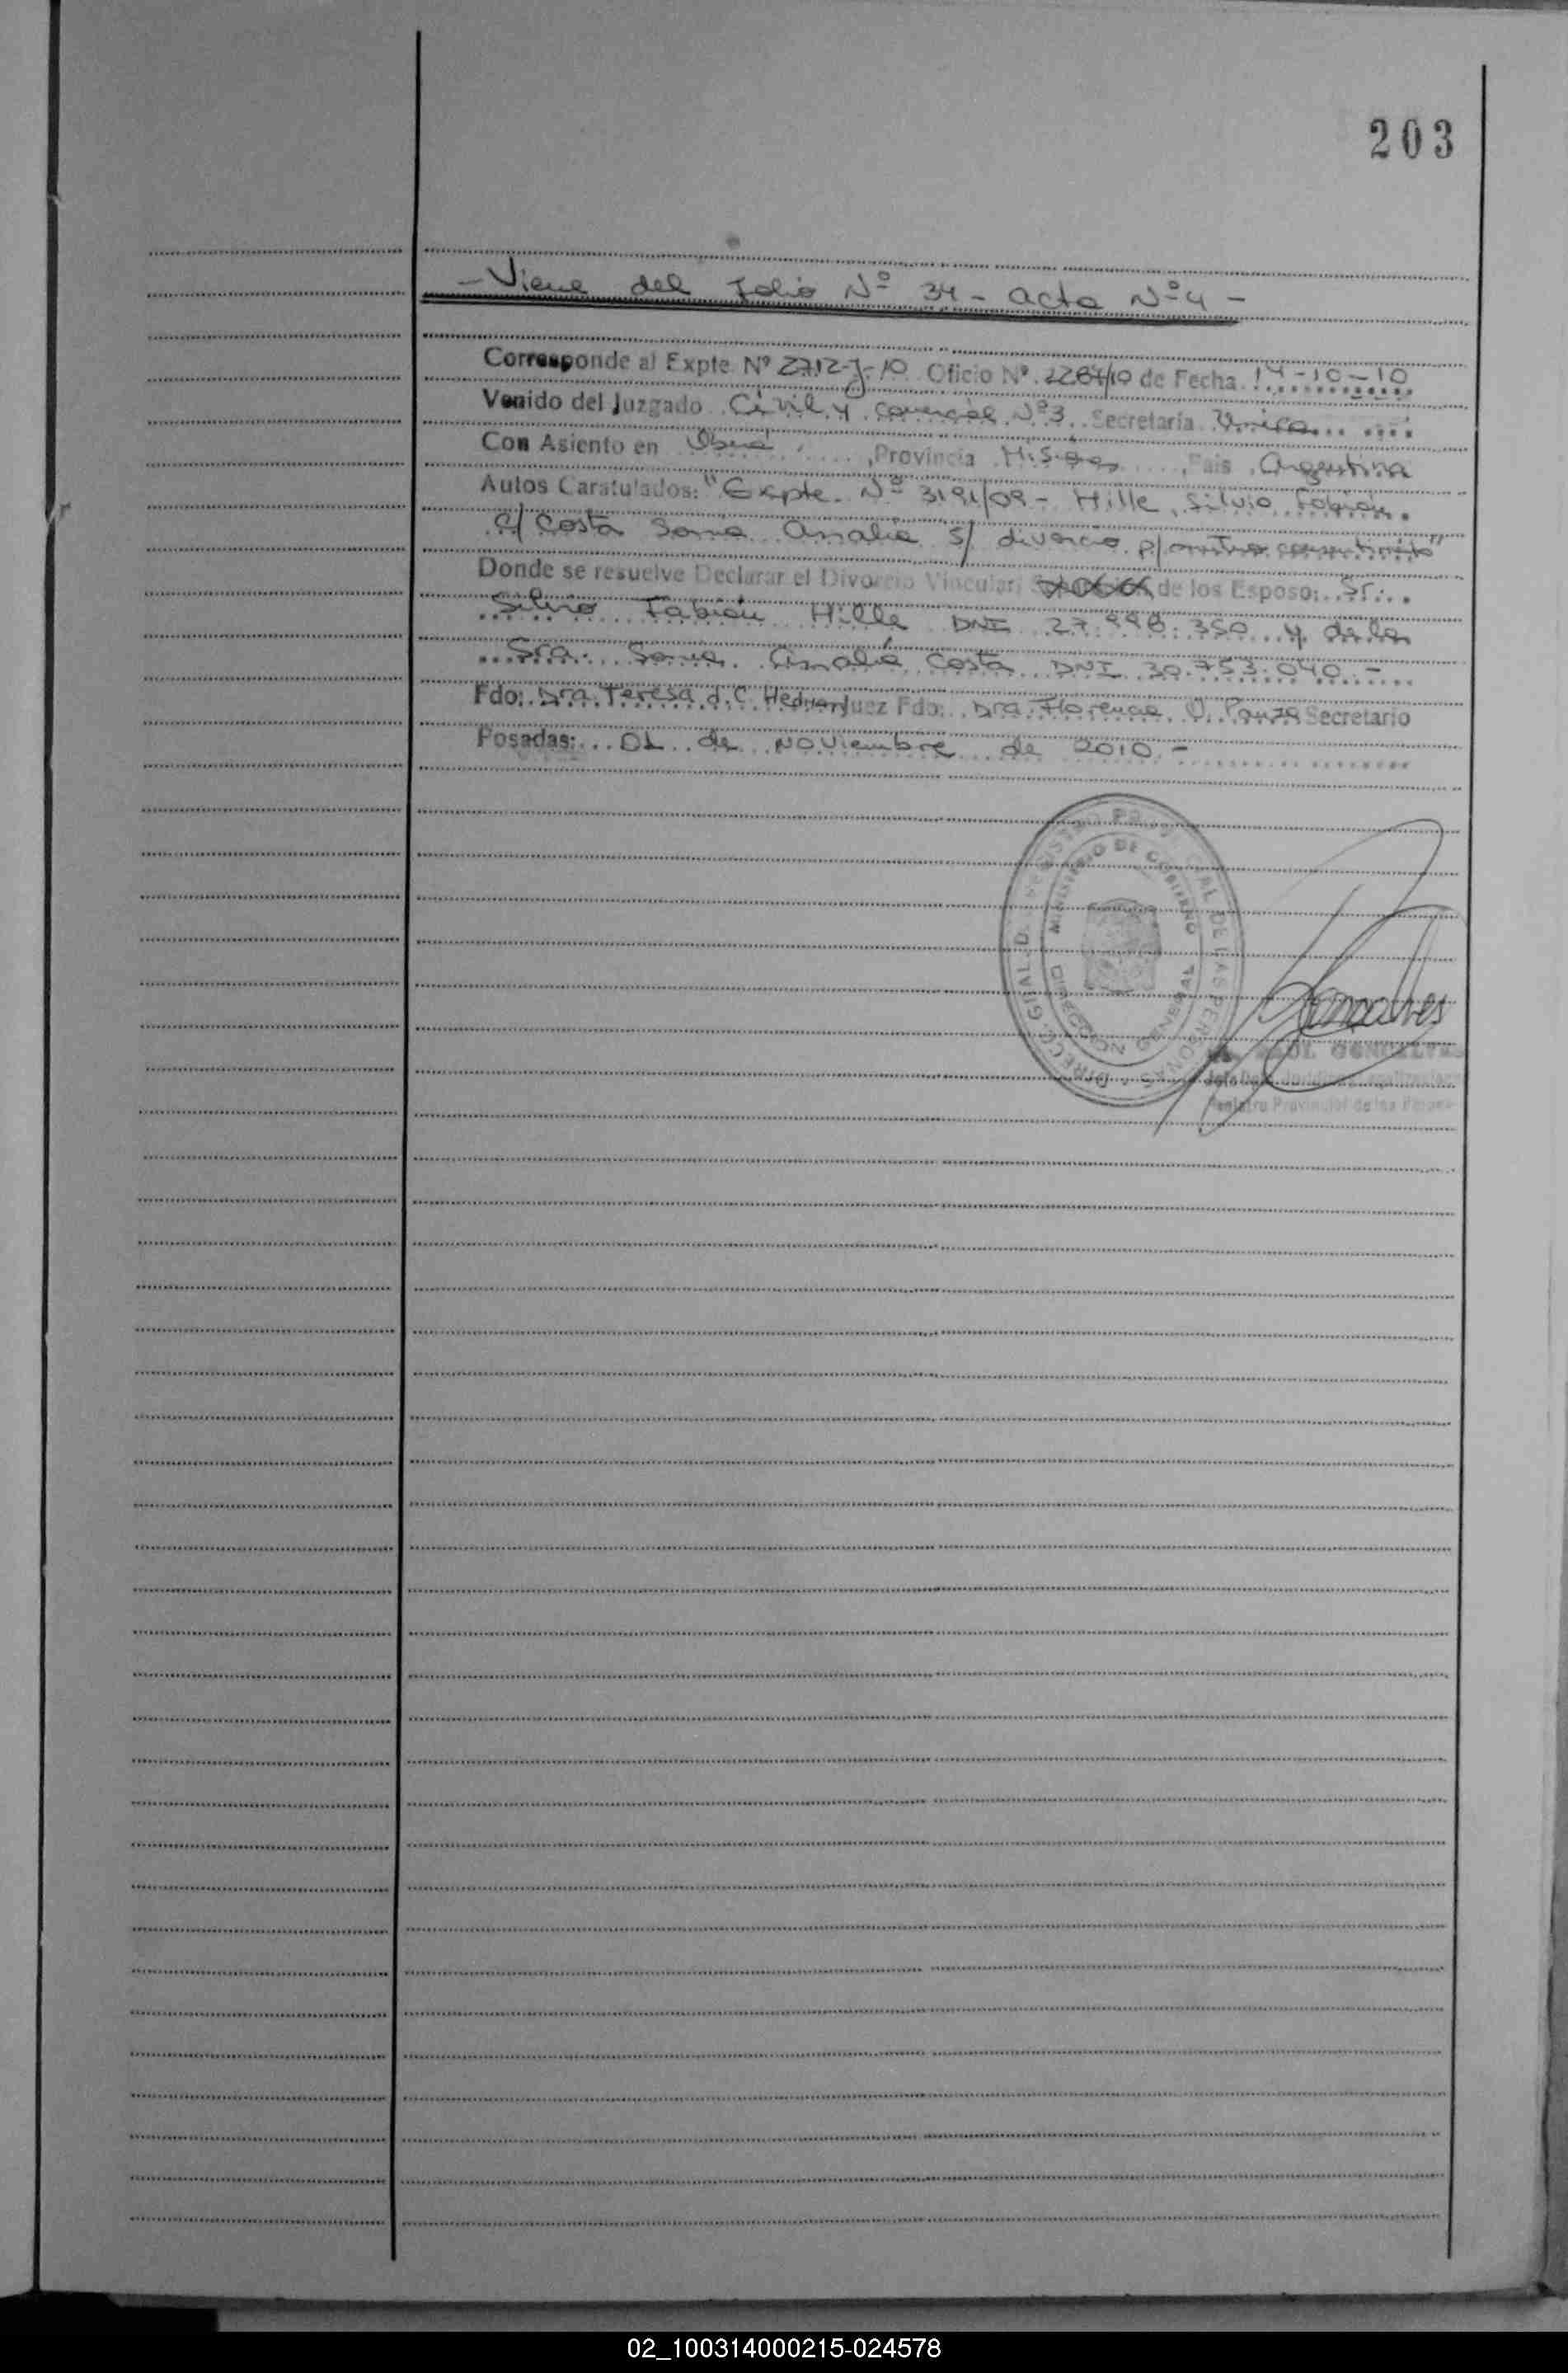 203
- Viene del Folio Nº 34 - acta Nº 4 -
Corresponde al Expte. Nº 2712-J-10 Oficio Nº 2284/10 de Fecha 14-10-10
Venido del Juzgado Civil y Comercial Nº3 Secretaría Unica
Con Asiento en Oberá, Provincia Misiones, País Argentina
Autos Caratulados: "Expte. Nº 3191/09 - Hille, Silvio Fabián
c/ Costa Sonia Analia s/ divorcio p/
Donde se resuelve Declarar el Divorcio Vincular de los Esposo: Sr.
Silvio Fabián Hille DNI 27.998.350 y de la
Sra. Sonia Analía Costa DNI 30.753.040.-
Fdo: Dra. Teresa d. C. Juez Fdo: Dra. Florencia Secretario
Posadas: 01 de Noviembre de 2010.-
DIRECC. GRAL. D. REGISTRO PROVINCIAL DE LAS PERSONAS
MINISTERIO DE GOBIERNO
DIRECCION GENERAL
Goncalves
RAUL GONCALVES
Registro Provincial de las
02_100314000215-024578